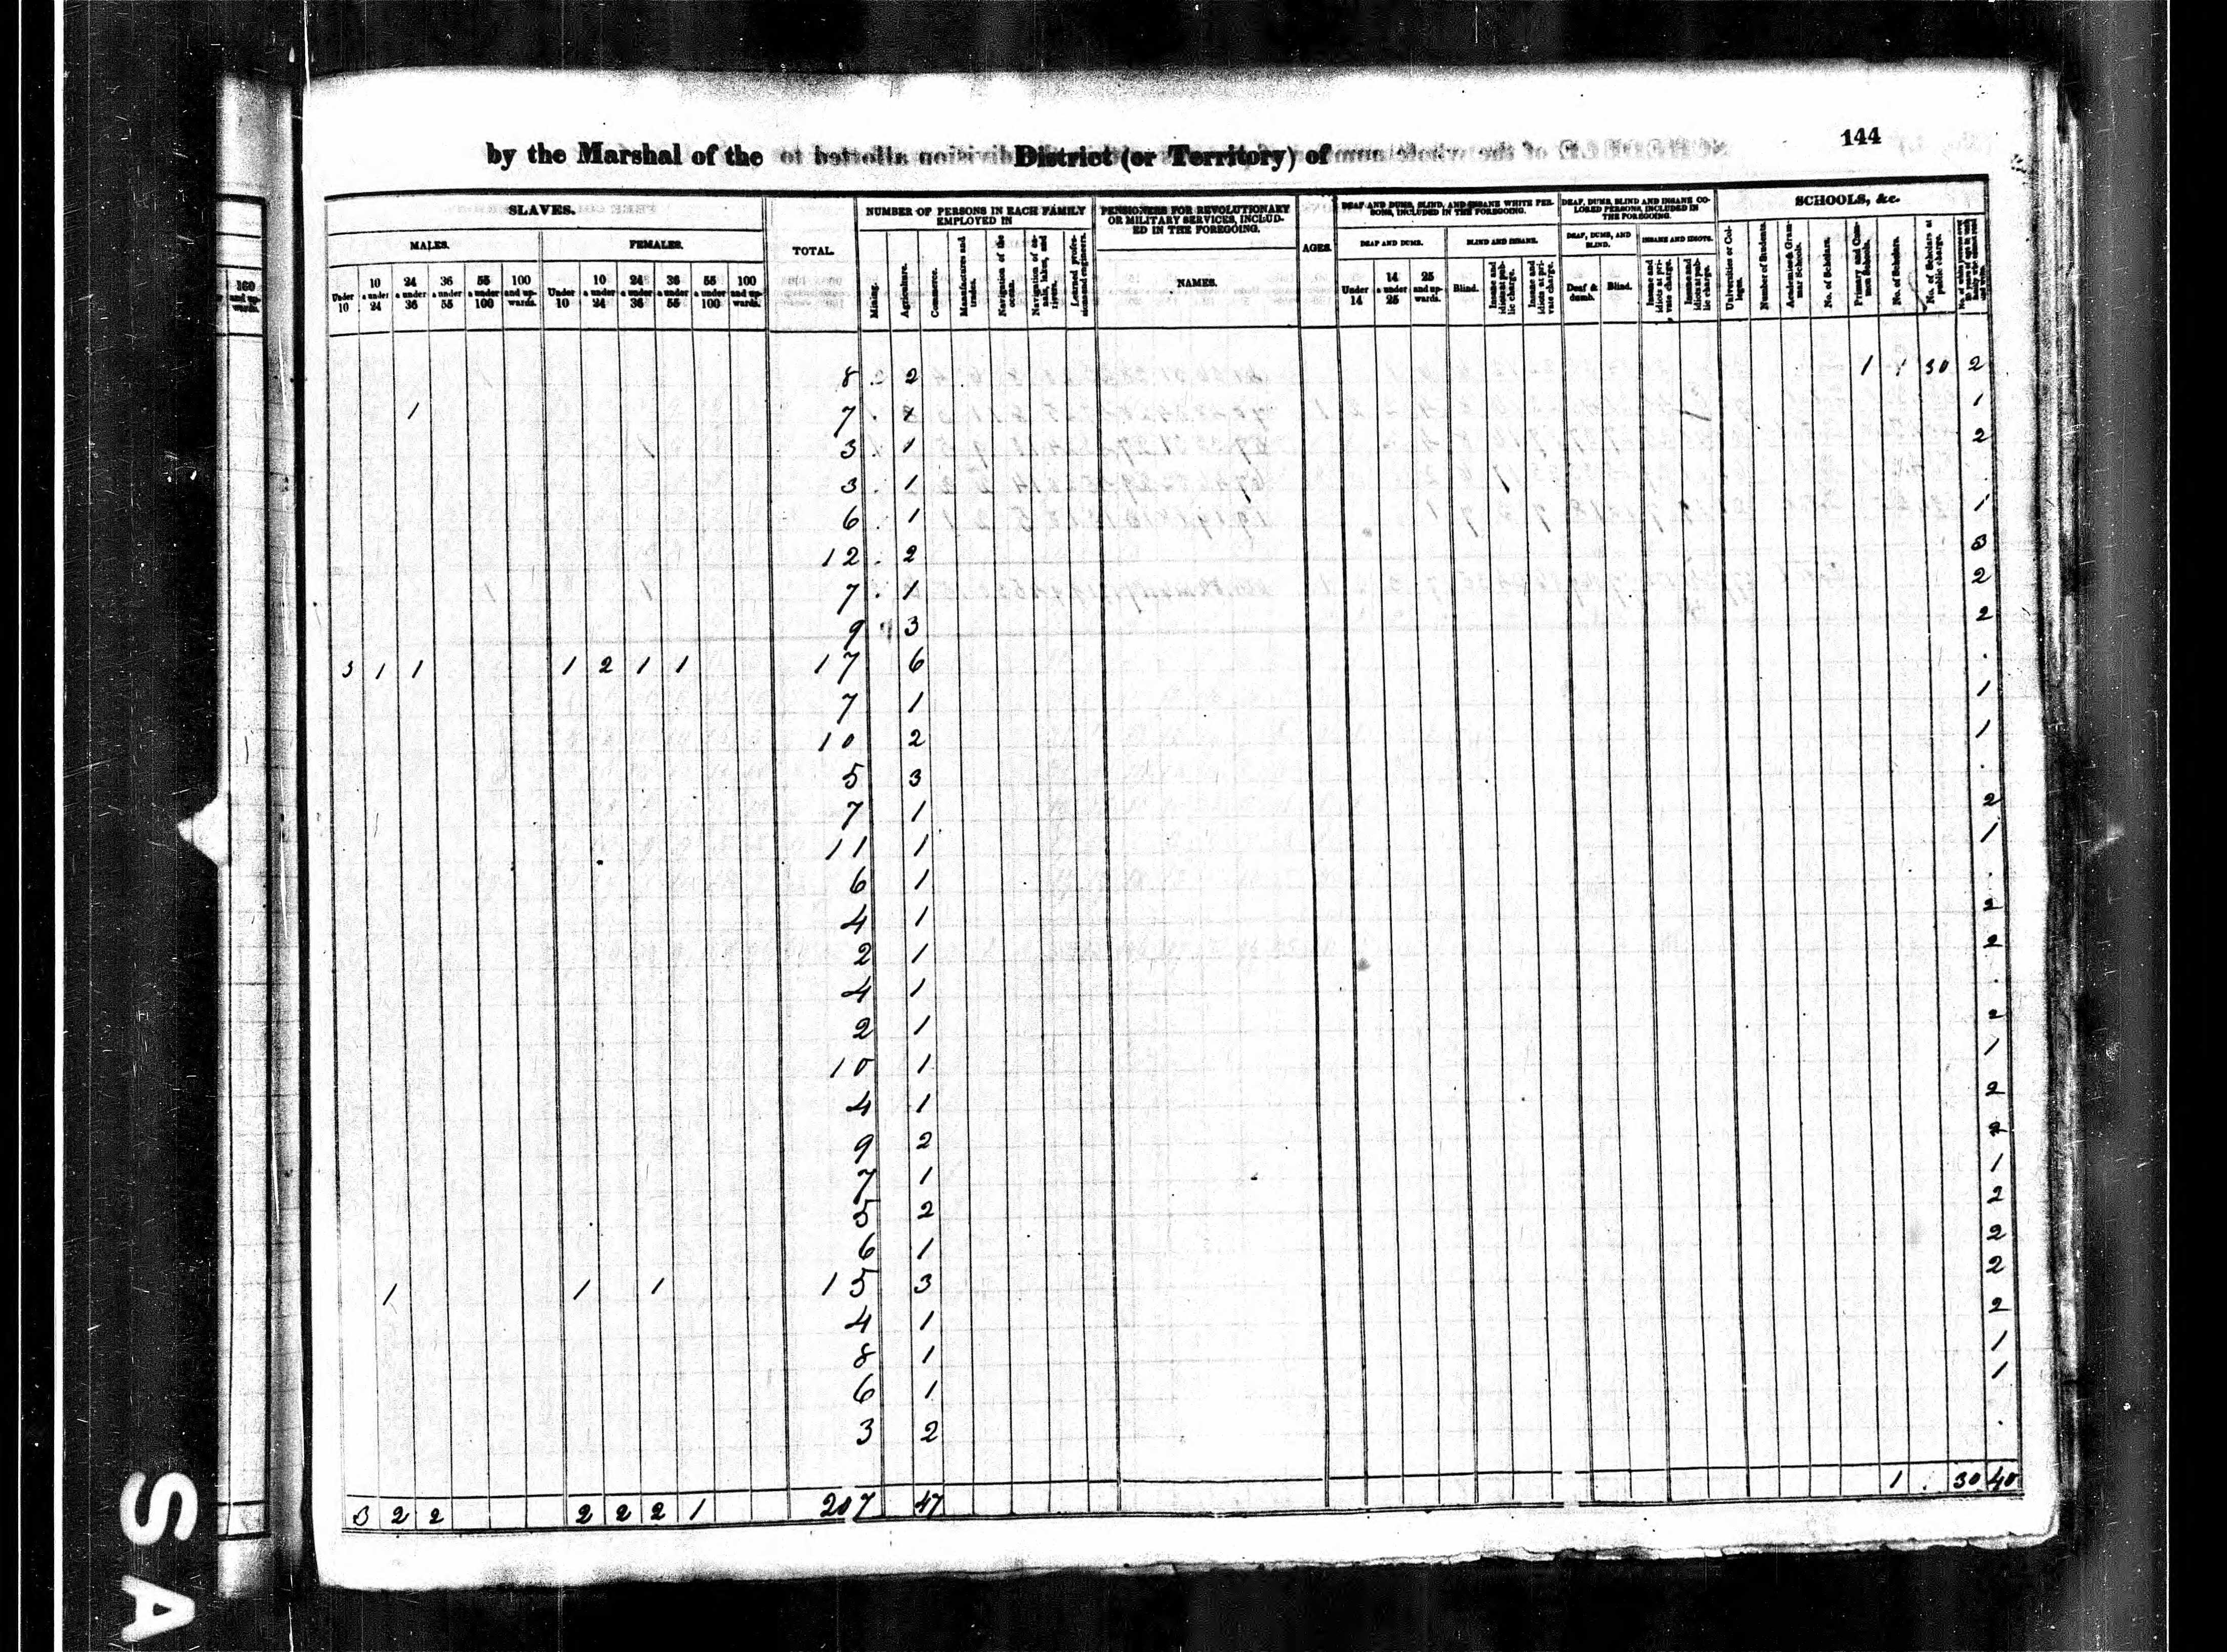 144
by the Marshal of the District (or Territory) of
SLAVES.
MALES. FEMALES.
Under 10 10 & under 24 24 & under 36 36 & under 55 55 & under 100 100 and upwards.
Under 10 10 & under 24 24 & under 36 36 & under 55 55 & under 100 100 and upwards.
TOTAL.
NUMBER OF PERSONS IN EACH FAMILY EMPLOYED IN
Mining. Agriculture. Commerce. Manufactures and trades. Navigation of the ocean. Navigation of canals, lakes, and rivers. Learned professions and engineers.
PENSIONERS FOR REVOLUTIONARY OR MILITARY SERVICES, INCLUDED IN THE FOREGOING.
NAMES. AGES.
DEAF AND DUMB, BLIND, AND INSANE WHITE PERSONS, INCLUDED IN THE FOREGOING.
DEAF AND DUMB. BLIND AND INSANE.
Under 14 14 & under 25 25 and upwards. Blind. Insane and idiots at public charge. Insane and idiots at private charge.
DEAF, DUMB, BLIND AND INSANE COLORED PERSONS, INCLUDED IN THE FOREGOING.
DEAF, DUMB, AND BLIND. INSANE AND IDIOTS.
Deaf & dumb. Blind. Insane and idiots at private charge. Insane and idiots at public charge.
SCHOOLS, &c.
Universities or Colleges. Number of Students. Academies & Grammar Schools. No. of Scholars. Primary and Common Schools. No. of Scholars. No. of Scholars at public charge.
8 2 1 1 30 2
1 7 1
3 1 2
3 1
6 1 1
12 2 3
7 1 2
9 3 2
3 1 1 1 2 1 1 17 6
7 1 1
10 2 1
5 3
7 1 2
11 1 1
6 1
4 1 2
2 1 2
4 1
2 1 2
10 1 1
4 1 2
9 2 2
7 1 1
5 2 2
6 1 2
1 1 1 15 3 2
4 1 2
8 1 1
6 1 1
3 2
3 2 2 2 2 2 1 207 47 1 30 40
S A